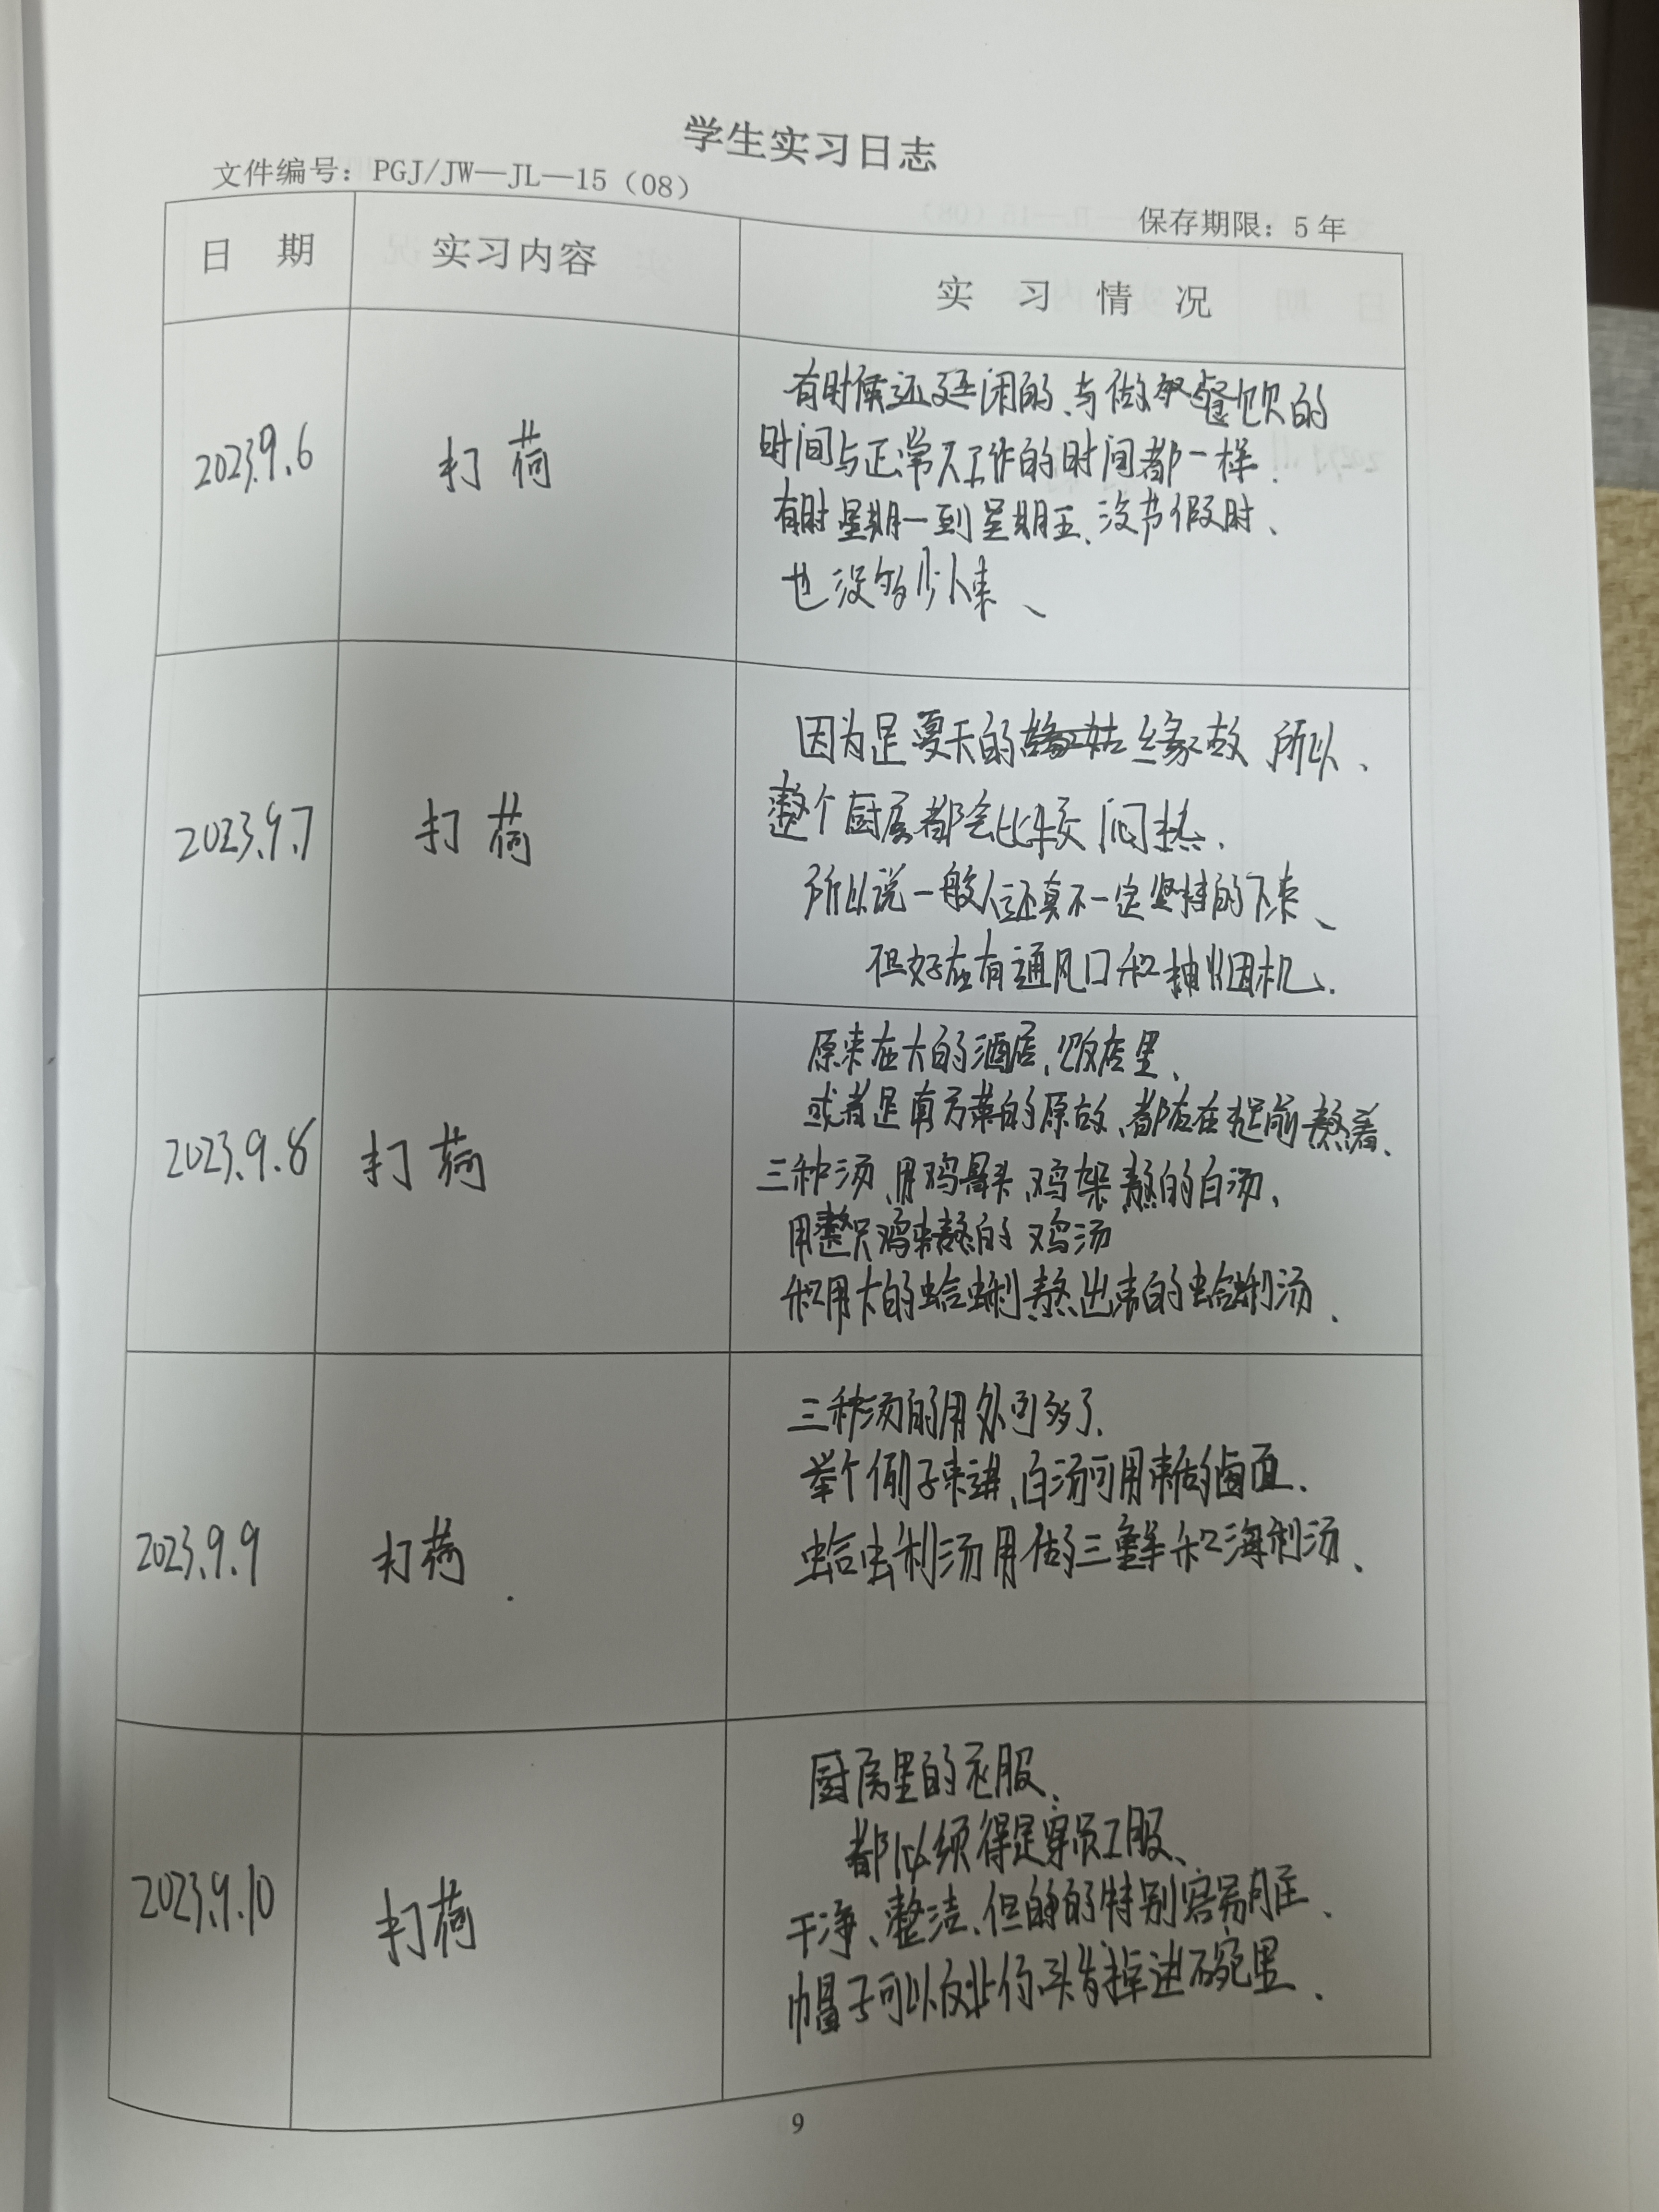 学生实习日志
文件编号：PGJ/JW—JL—15（08）
保存期限：5年
日 期 实习内容 实 习 情 况
2023.9.6 打荷
有时候还挺闲的、与做餐饮的
时间与正常人工作的时间都一样.
有时星期一到星期五、没节假时、
也没多少人来、
2023.9.7 打荷
因为是夏天的缘故 所以、
整个厨房都会比较闷热.
所以说一般人还真不一定坚持的下来、
但好在有通风口和抽烟机.
2023.9.8 打荷
原来在大的酒店、饭店里、
或者是南方菜的原故、都在提前熬着、
三种汤、用鸡骨头、鸡架熬的白汤、
用整只鸡来熬的 鸡汤
和用大的蛤蜊熬出来的蛤蜊汤.
2023.9.9 打荷.
三种汤的用处可多了.
举个例子来讲、白汤可用来做卤面.
蛤蜊汤用做三鲜和海利汤、
2023.9.10 打荷
厨房里的衣服、
都必须得是穿员工服、
干净、整洁、但的特别容易脏、
帽子可以防止你头发掉进碗里.
9